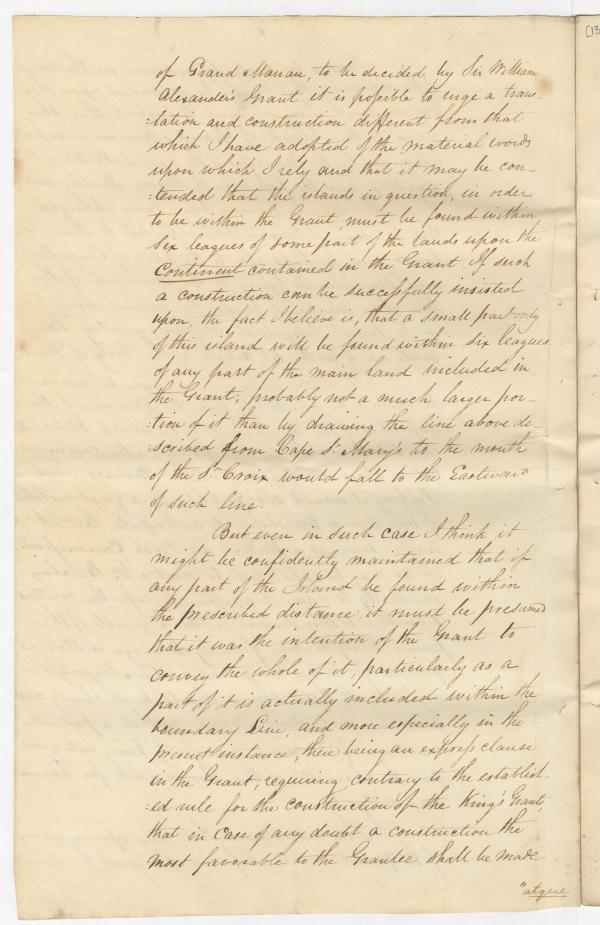 [13
of Grand Manan, to be decided by Sir William
Alexander's Grant it is possible to urge a trans-
:lation and construction different from that
which I have adopted of the material words
upon which I rely and that it may be con-
:tended that the islands in question, in order
to be within the Grant, must be found within
six leagues of some part of the lands upon the
Continent contained in the Grant. If such
a construction can be successfully insisted
upon, the fact I believe is, that a small part only
of this island will be found within six leagues
of any part of the main land included in
the Grant; probably not a much larger por-
:tion of it than by drawing the line above de-
:scribed from Cape St. Mary's to the mouth
of the St. Croix would fall to the Eastward
of such line.
But even in such case I think it
might be confidently maintained that if
any part of the Island be found within
the prescribed distance, it must be presumed
that it was the intention of the Grant to
convey the whole of it, particularly as a
part of it is actually included within the
boundary Line, and more especially in the
present instance, there being an express clause
in the Grant, requiring, contrary to the establish-
:ed rule for the construction of the King's Grants,
that in case of any doubt a construction the
most favorable to the Grantee shall be made
"atque